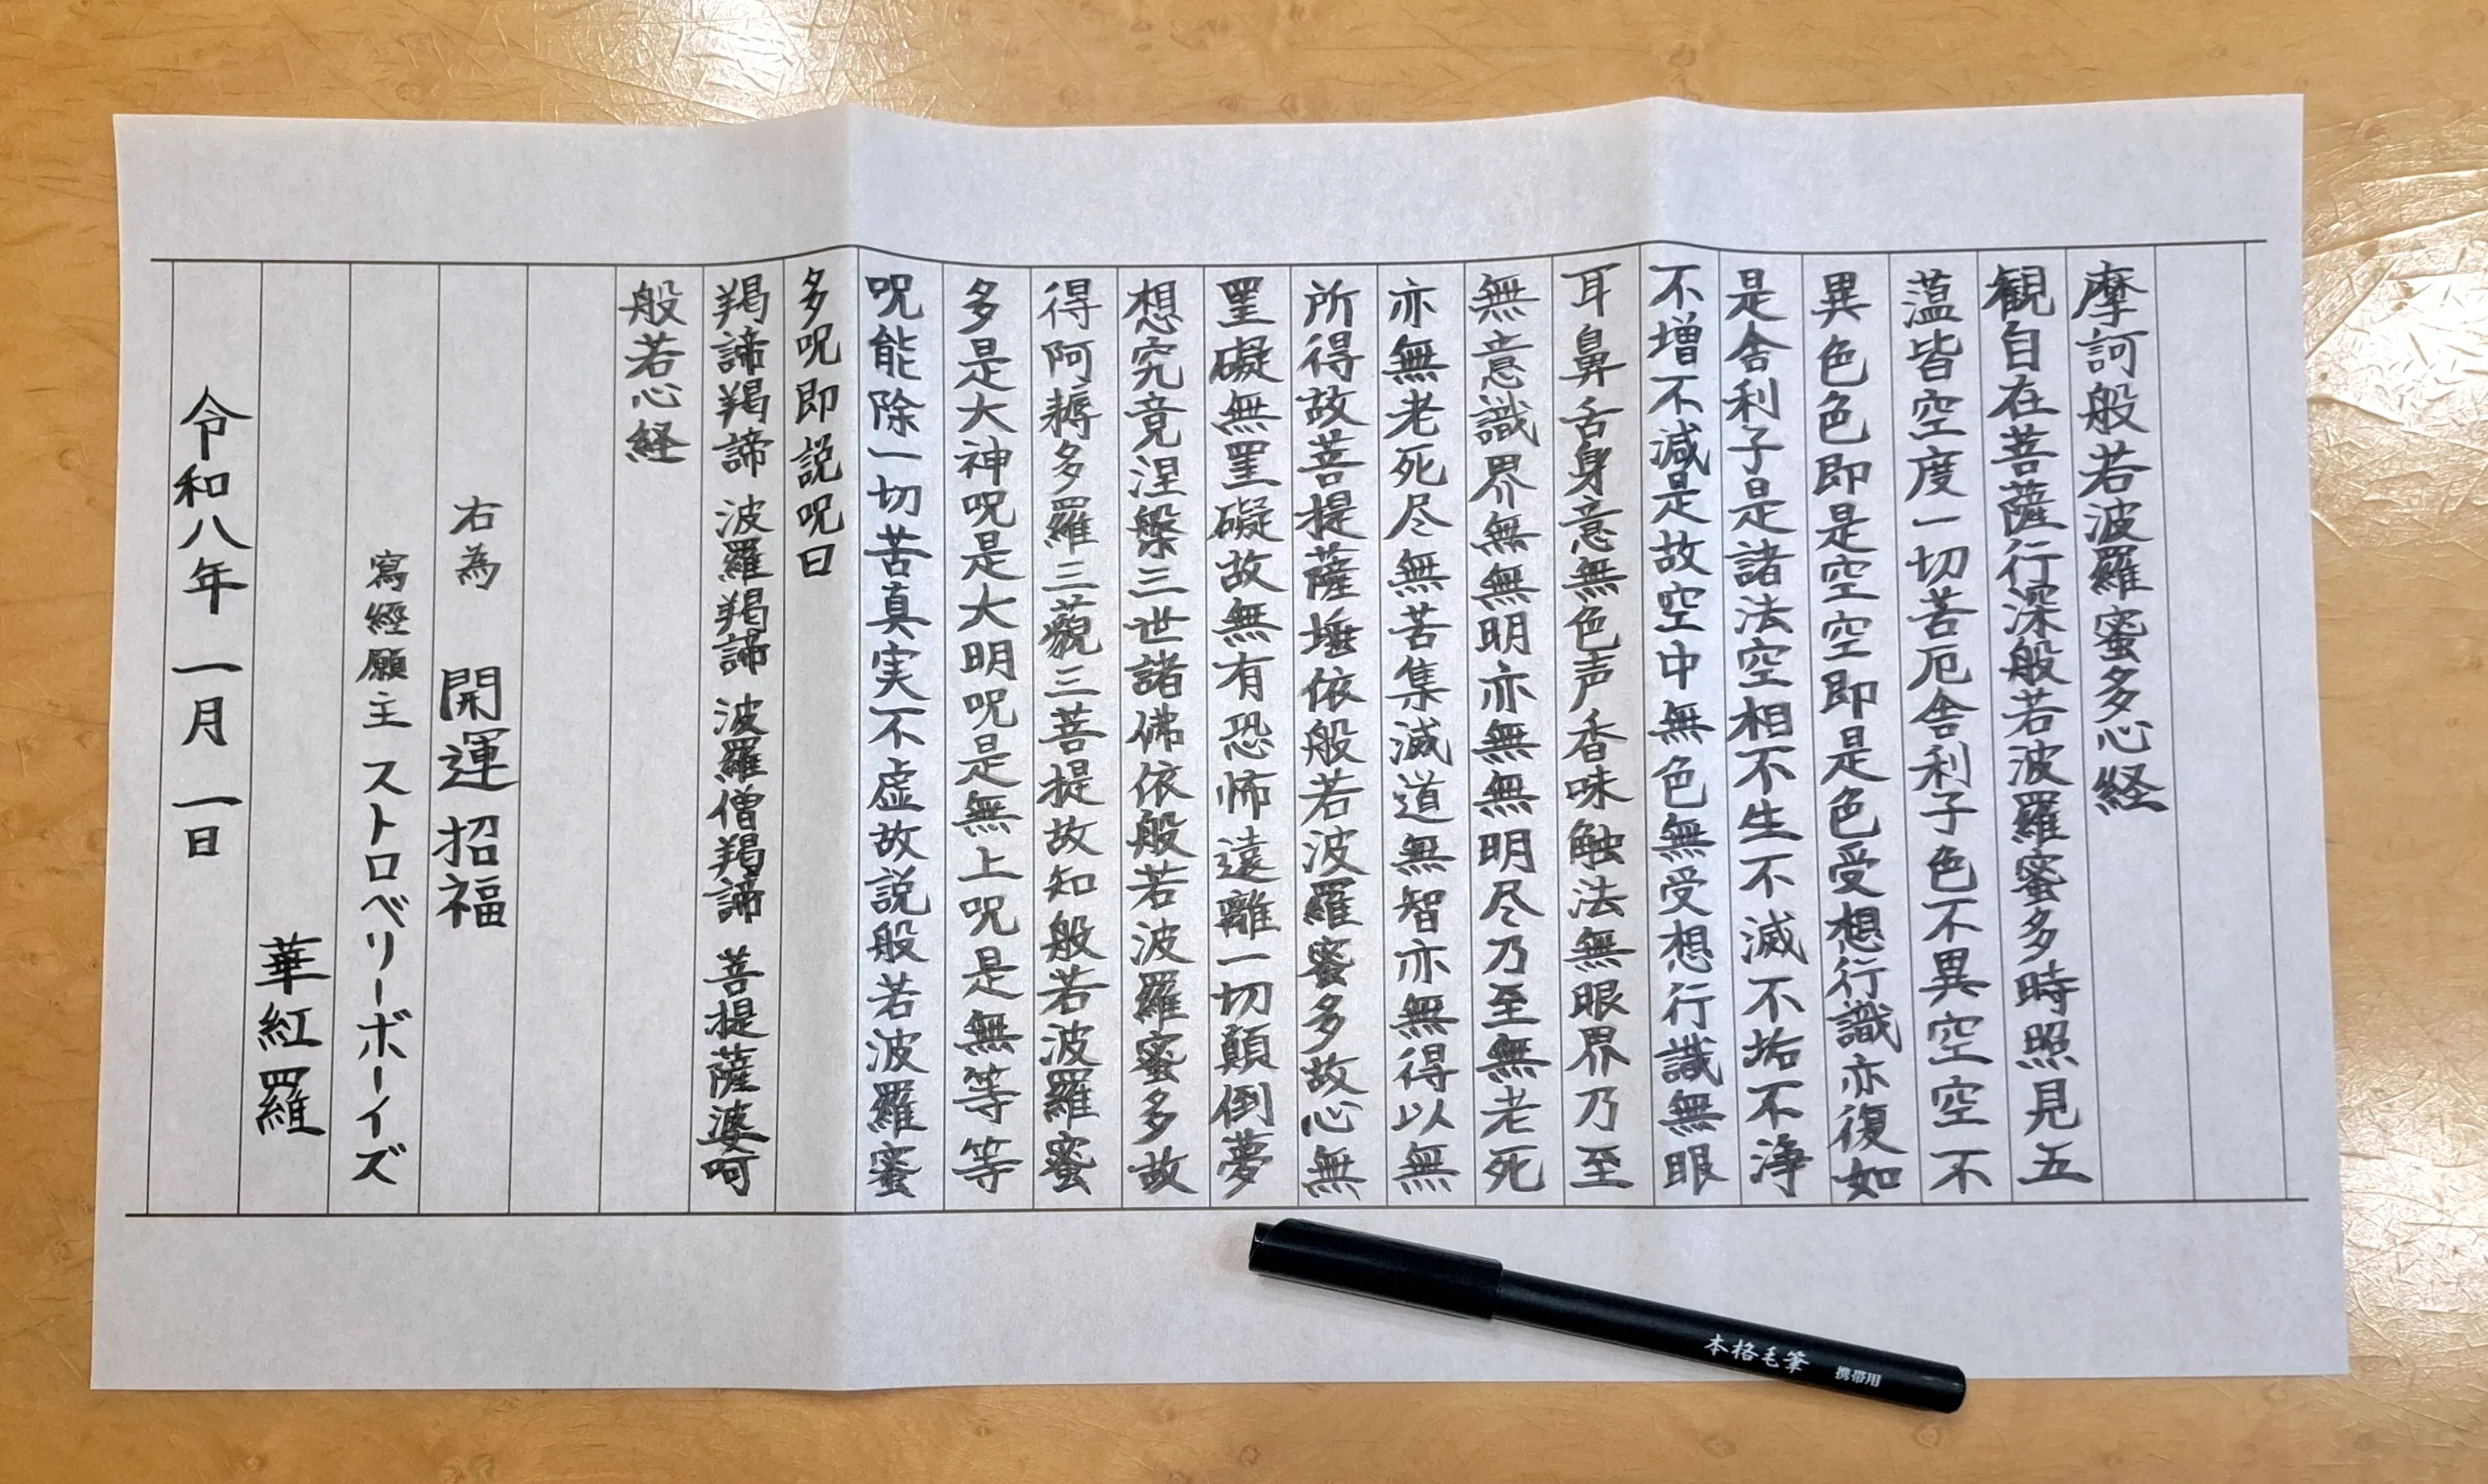 摩訶般若波羅蜜多心経
観自在菩薩行深般若波羅蜜多時照見五
蕰皆空度一切苦厄舎利子色不異空空不
異色色即是空空即是色受想行識亦復如
是舎利子是諸法空相不生不滅不垢不浄
不増不減是故空中無色無受想行識無眼
耳鼻舌身意無色声香味触法無眼界乃至
無意識界無無明亦無無明尽乃至無老死
亦無老死尽無苦集滅道無智亦無得以無
所得故菩提薩埵依般若波羅蜜多故心無
罣礙無罣礙故無有恐怖遠離一切顛倒夢
想究竟涅槃三世諸佛依般若波羅蜜多故
得阿耨多羅三藐三菩提故知般若波羅蜜
多是大神呪是大明呪是無上呪是無等等
呪能除一切苦真実不虚故説般若波羅蜜
多呪即説呪曰
羯諦羯諦 波羅羯諦 波羅僧羯諦 菩提薩婆呵
般若心経
右為 開運招福
寫經願主 ストロベリーボーイズ
華紅羅
令和八年 一月 一日
本格毛筆 携帯用